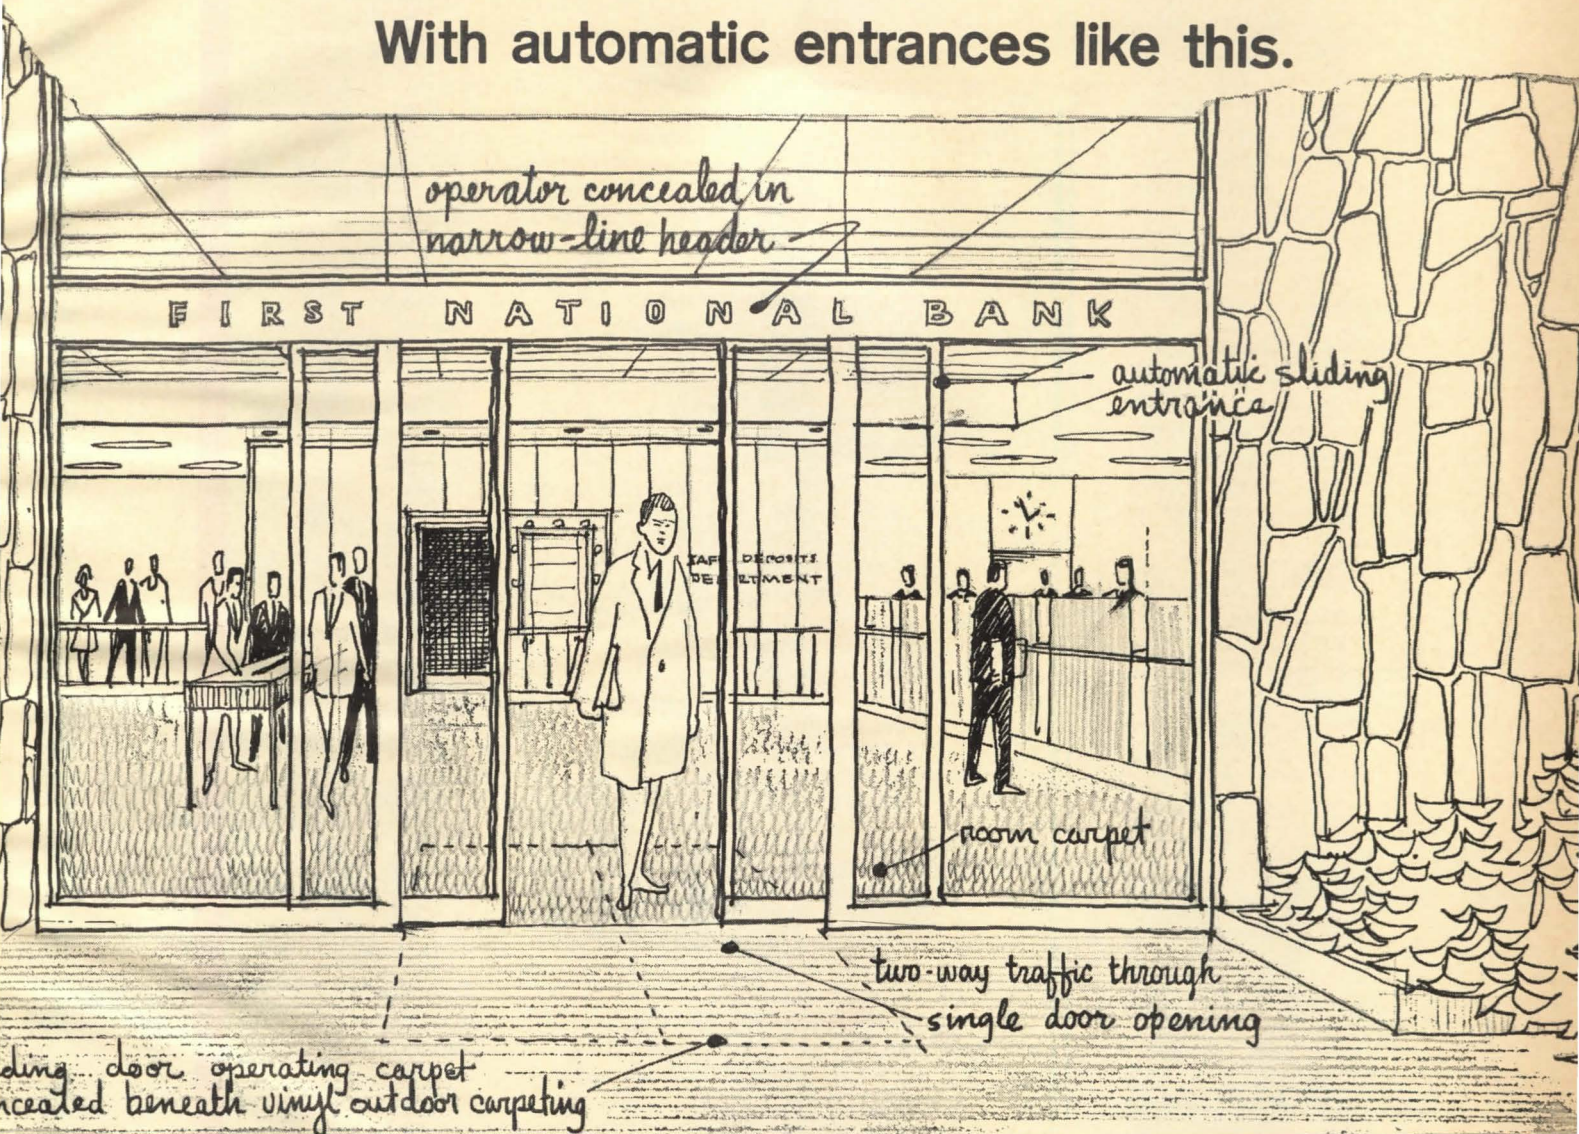 With automatic entrances like this.
operator concealed in
narrow-line header
FIRST NATIONAL BANK
automatic sliding
entrance
DEPOSITS
room carpet
two-way traffic through
single door opening
door operating carpet
beneath vinyl outdoor carpeting